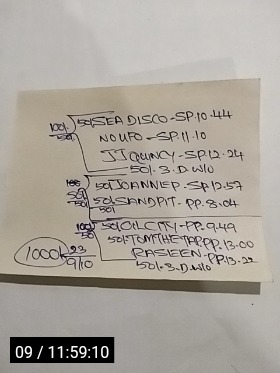 100/. 50/. SEA DISCO-SP.10.44
50/. NOUFO-SP.11.10
JJ QUINCY-SP.12.24
50/.3.D.W/O
50/. JOANNEP-SP.12.57
50/. 50/. SANDPIT-PP.8.04
50/. 50/.
100/. 50/. OIL CITY-PP.9.49
50/. 50/. TOMTHETAP.PP.13.00
RASIEEN-PP.13.22
50/.3.D.W/O
1000/. 23
9/10
09 / 11:59:10